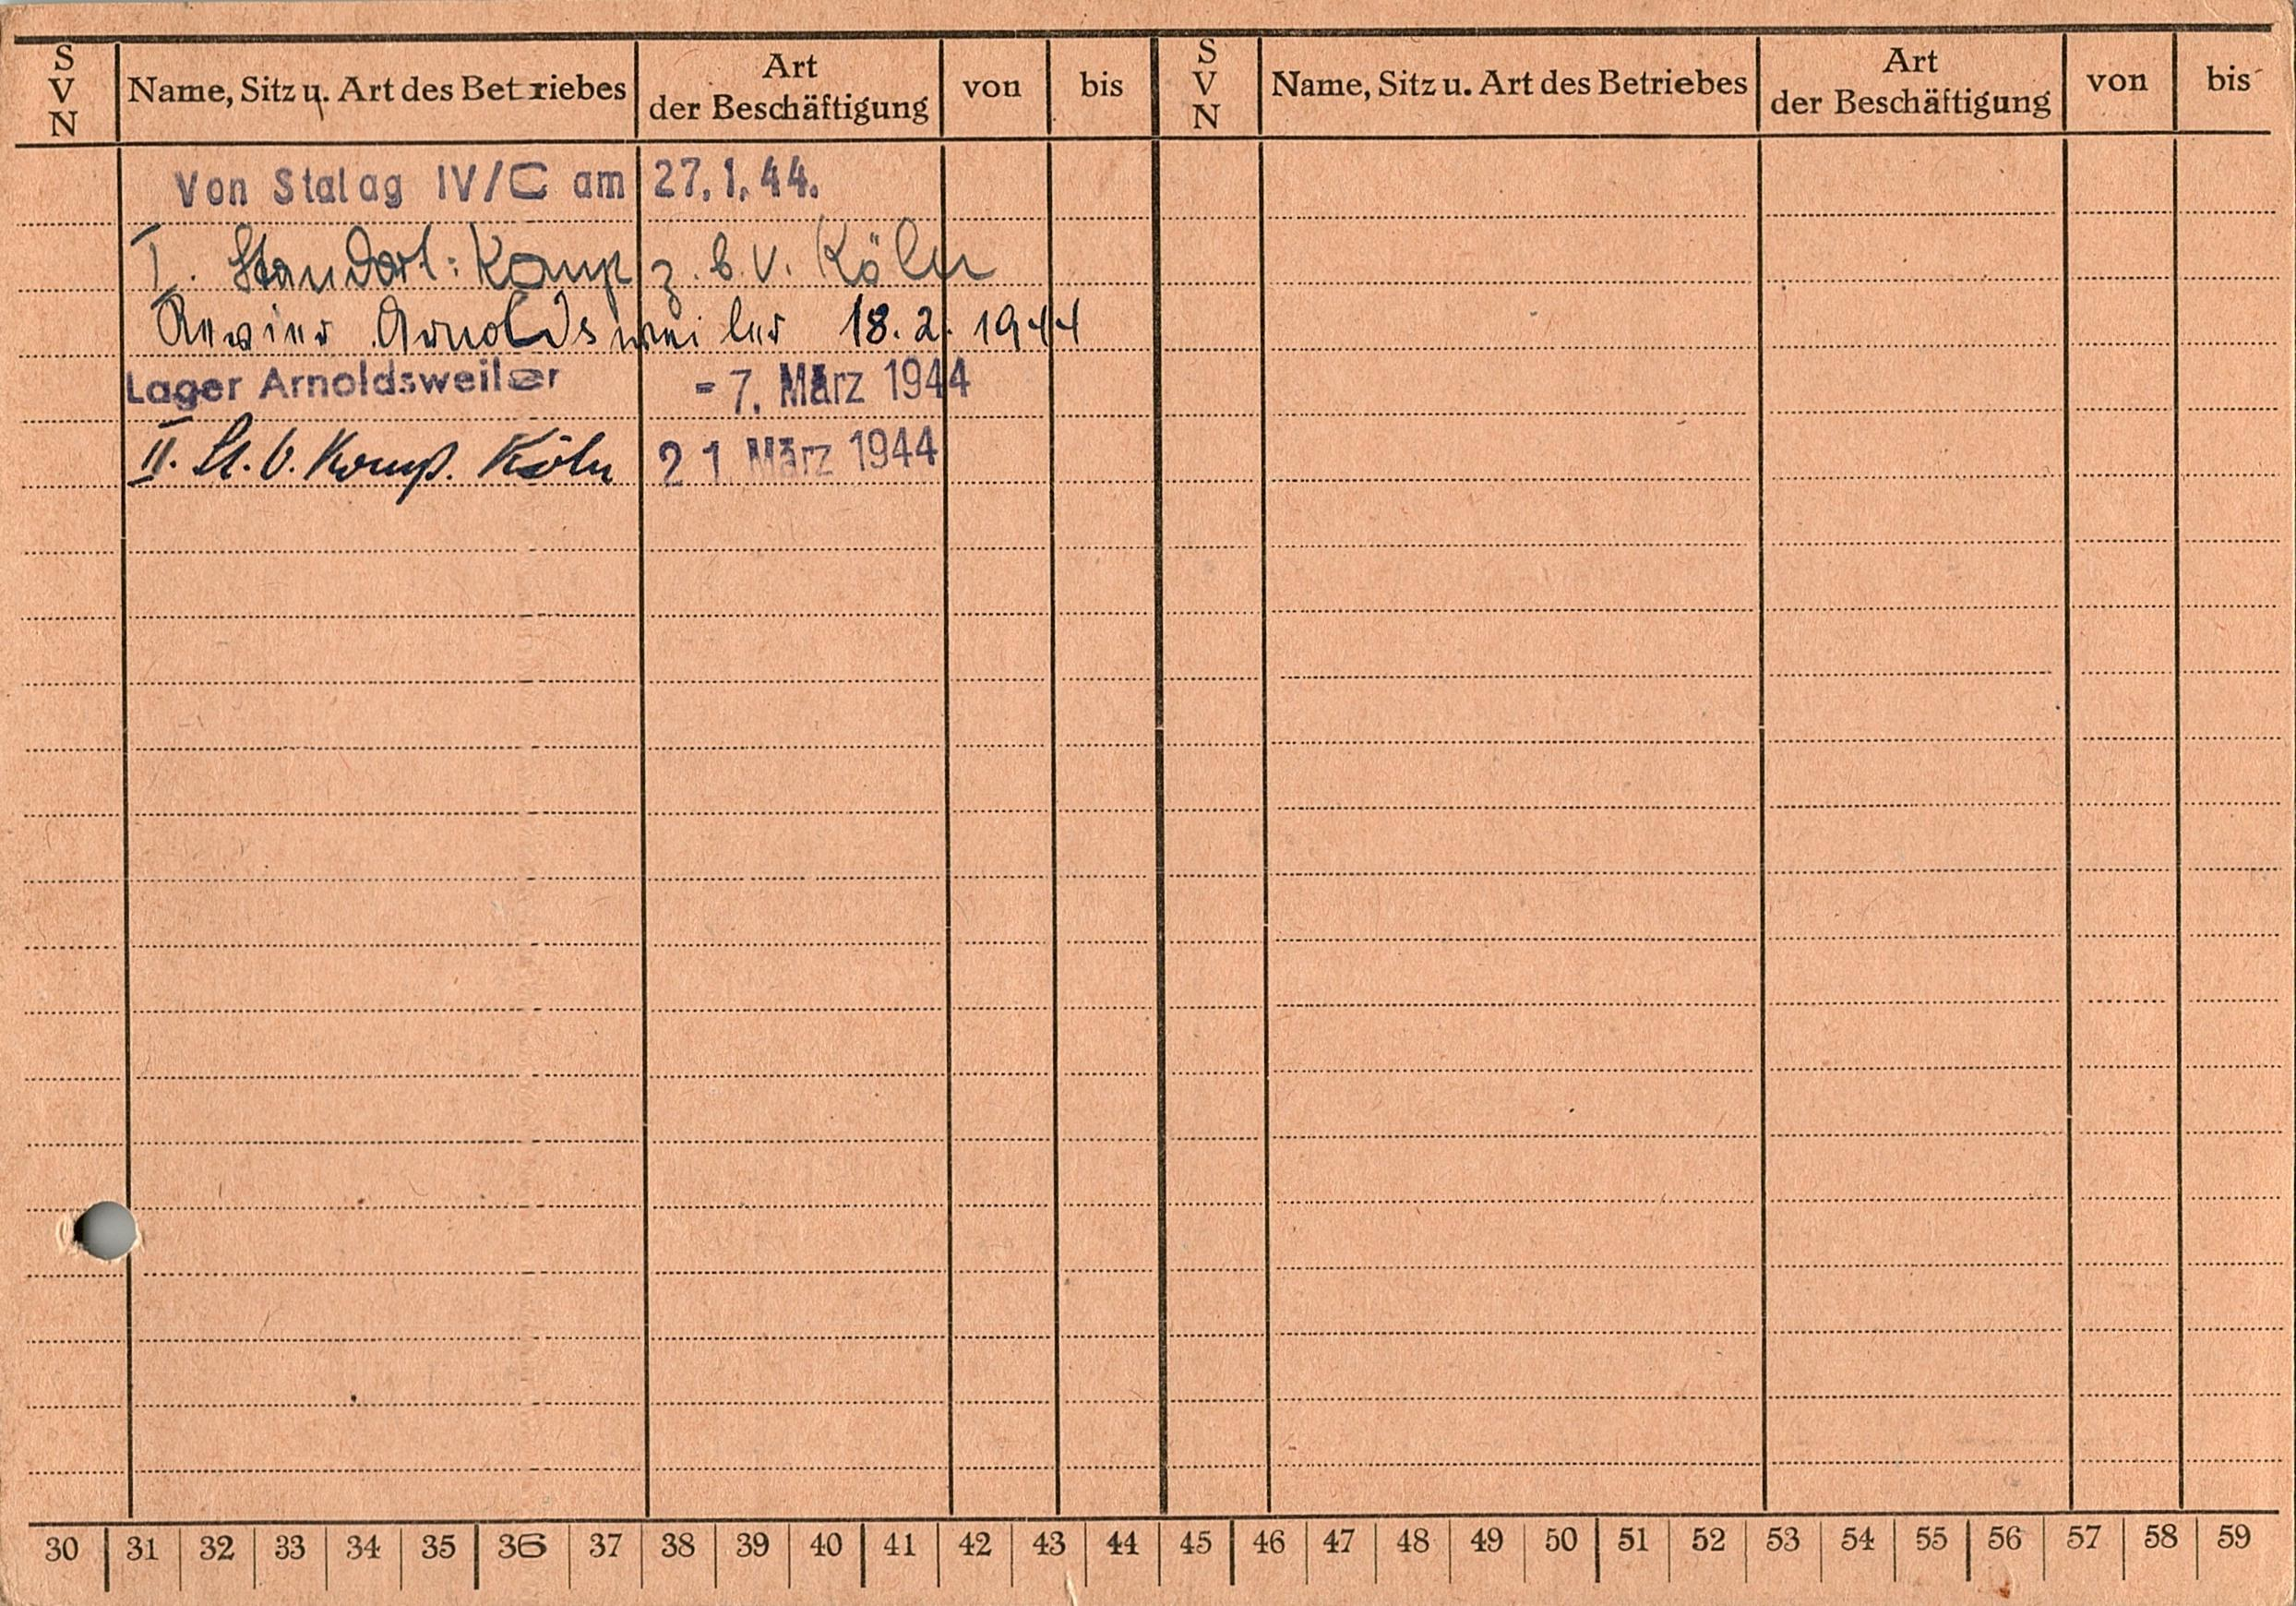 S V N Name, Sitz u. Art des Betriebes Art der Beschäftigung von bis S V N Name, Sitz u. Art des Betriebes Art der Beschäftigung von bis
Von Stalag IV/C am 27.1.44.
I. Standort: Komp z.b.V. Köln
Revier Arnoldsweiler 18.2.1944
Lager Arnoldsweiler - 7. März 1944
II. St. b. Komp. Köln 21 März 1944
30 31 32 33 34 35 36 37 38 39 40 41 42 43 44 45 46 47 48 49 50 51 52 53 54 55 56 57 58 59